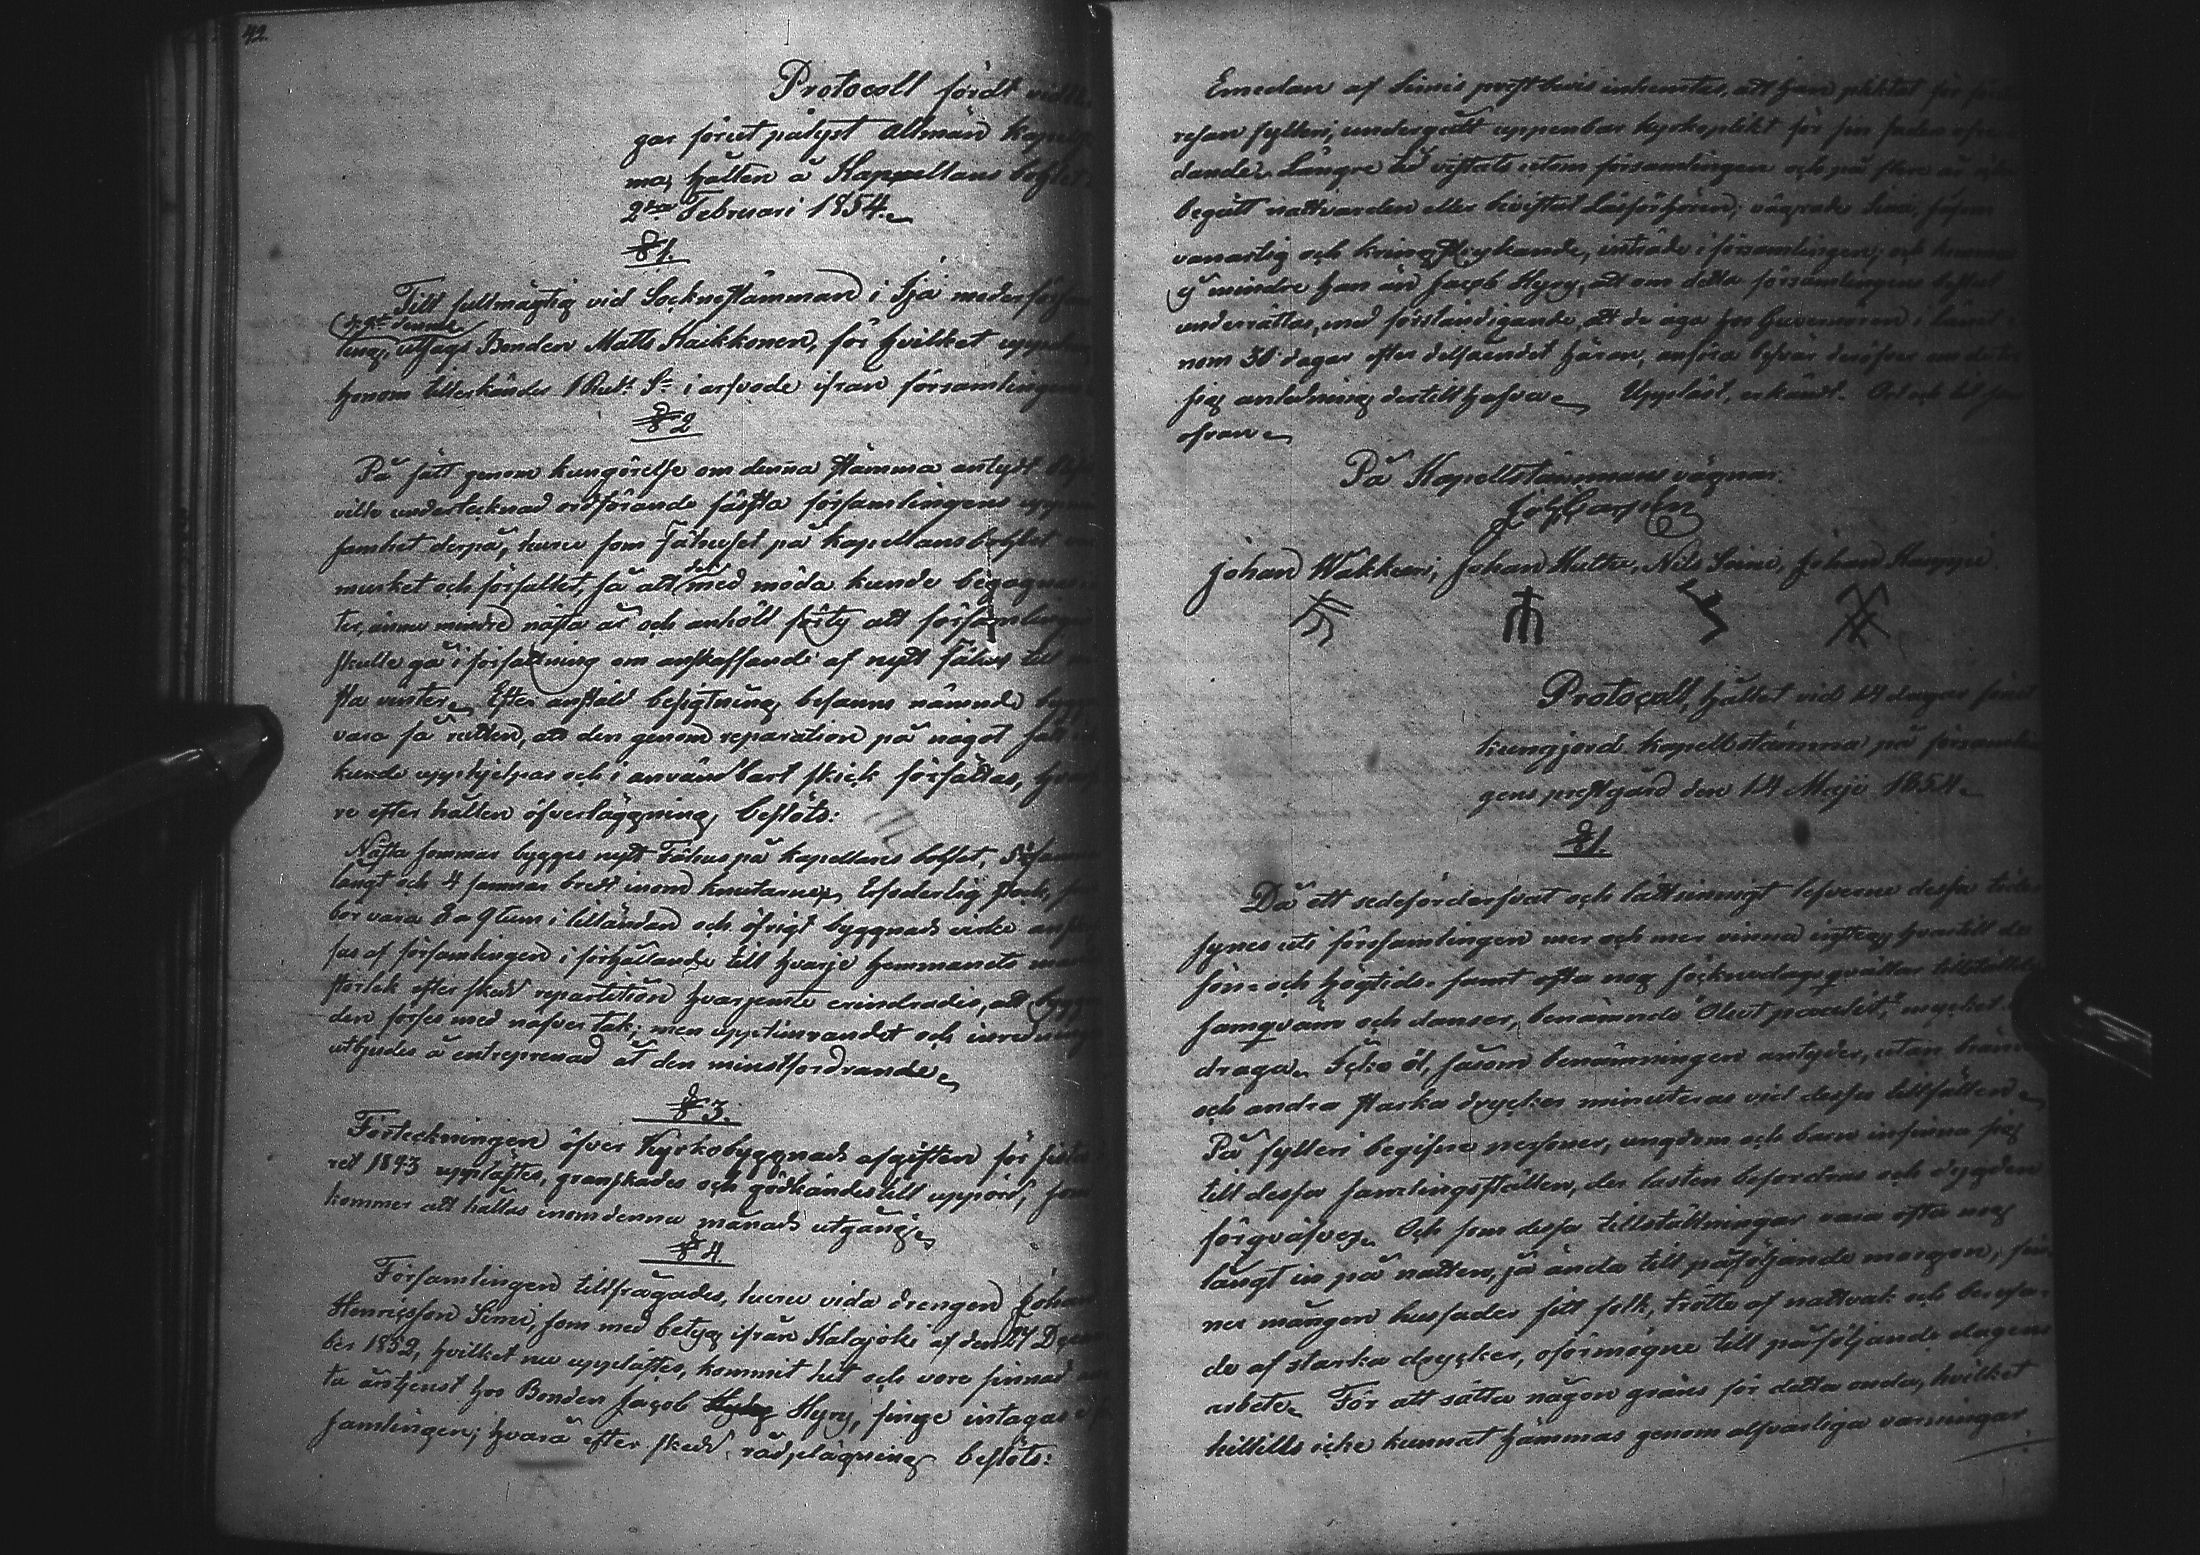 42.
Protocoll fördt
gar förut pålyst allmän
ma, hållen å Kappellans bohlet
2dra Februari 1854.
§ 1.
Till fullmägtig vid Socknestämman i
ting, utsågs Bonden Matts Haikkonen, för hvilket
honom tillerkändes 1 Rub. Sr i arfvode ifrån församlingen
§ 2
På sätt genom kungörelse om denna stämma antydt
ville undertecknad ordförande fästa församlingens
samhet derpå, huru som Fähuset på kapellansbohlet
murket och förfallet, så att det med möda kunde begagnas
ter, ännu mindre nästa år och anhöll förty att församlingen
skulle gå i författning om anskaffande af nytt fähus till
sta vinter. Efter anstäld besigtning befanns nämnde
vara så rutten, att den genom reparation på något sätt
kunde upphjelpas och i användbart skick försättas,
re efter hållen öfverläggning, beslöts:
Nästa sommar bygges nytt Fähus på kapellans bohlet,
långt och 4 famnar bredt inom knutarne. Erforderlig stock,
bör vara 8 a 9 tum i lilländan och öfrigt byggnads virke
fas af församlingen i förhållande till hvarje hemmanets
storlek efter skedd repartition hvarjemte erindrades, att
den förses med näfvertak; men upptimrandet och
utbjudes å entreprenad åt den minstfordrande.
§ 3.
Förteckningen öfver Kyrkobyggnads afgiften för
ret 1843 upplästes, granskades och godkändes till uppörd, som
kommer att hållas inom denna månads utgång.
§ 4.
Församlingen tillfrågades, huru vida drengen Johan
Henricsson Simi, som med betyg ifrån Kalajoki af den 27
ber 1852, hvilket nu upplästes, kommit hit och vore sinnad
ta årstjenst hos Bonden Jacob Hyry, finge intagas i
samlingen; hvarå efter skedd rådplägning beslöts:
Emedan af Simis prestbevis inhemtes, att han pliktat för
resan fylleri, undergått uppenbar kyrkoplikt för sin
dande. Längre tid vistats utom församlingen och på flere år
begått nattvarden eller bevistat Läsförhören; vägrades Simi, såsom
vanartig och kringstrykande, inträde i församlingen, och
ej mindre han än Jacob Hyry, att om detta församlingens beslut
underrättas, med förständigande, att de äga hos Guvernören i länet
nom 30 dagar efter delfåendet häraf, anföra besvär deröfver om de
sig anledning dertill hafva. Uppläst, erkändt. Ort och tid som
ofvan.
På Kapellstämmans vägnar.
Joh:
Johan Wakkuri, Johan Mutka, Nils Simi, Johan
Protocoll, hållet vid 14 dagar förut
kungjord kapellstämma på församlin
gens prestgård den 14 Maji 1854.
§ 1.
Då ett sedeförderfvat och lättsinnigt lefverne dessa tider
synes uti församlingen mer och mer vinna insteg, hvartill de
sön- och högtids- samt ofta nog söcknedags qvällar tillställda
samqväm och danser, benämnde "Oluet paalit," mycket
draga. Icke öl, såsom benämningen antyder, utan
och andra starka drycker minuteras vid dessa tillfällen.
På fylleri begifne personer, ungdom och barn infinna sig
till dessa samlingsställen, der lasten befordras och dygden
förqväfves. Och som dessa tillställningar vara ofta nog
långt in på natten, ja ända till påföljande morgon,
ner mången husfader sitt folk, trötta af nattvak och
de af starka drycker, oförmögne till påföljande dagens
arbete. För att sätta någon gräns för detta onda, hvilket
hittills icke kunnat hämmas genom alfvarliga varningar